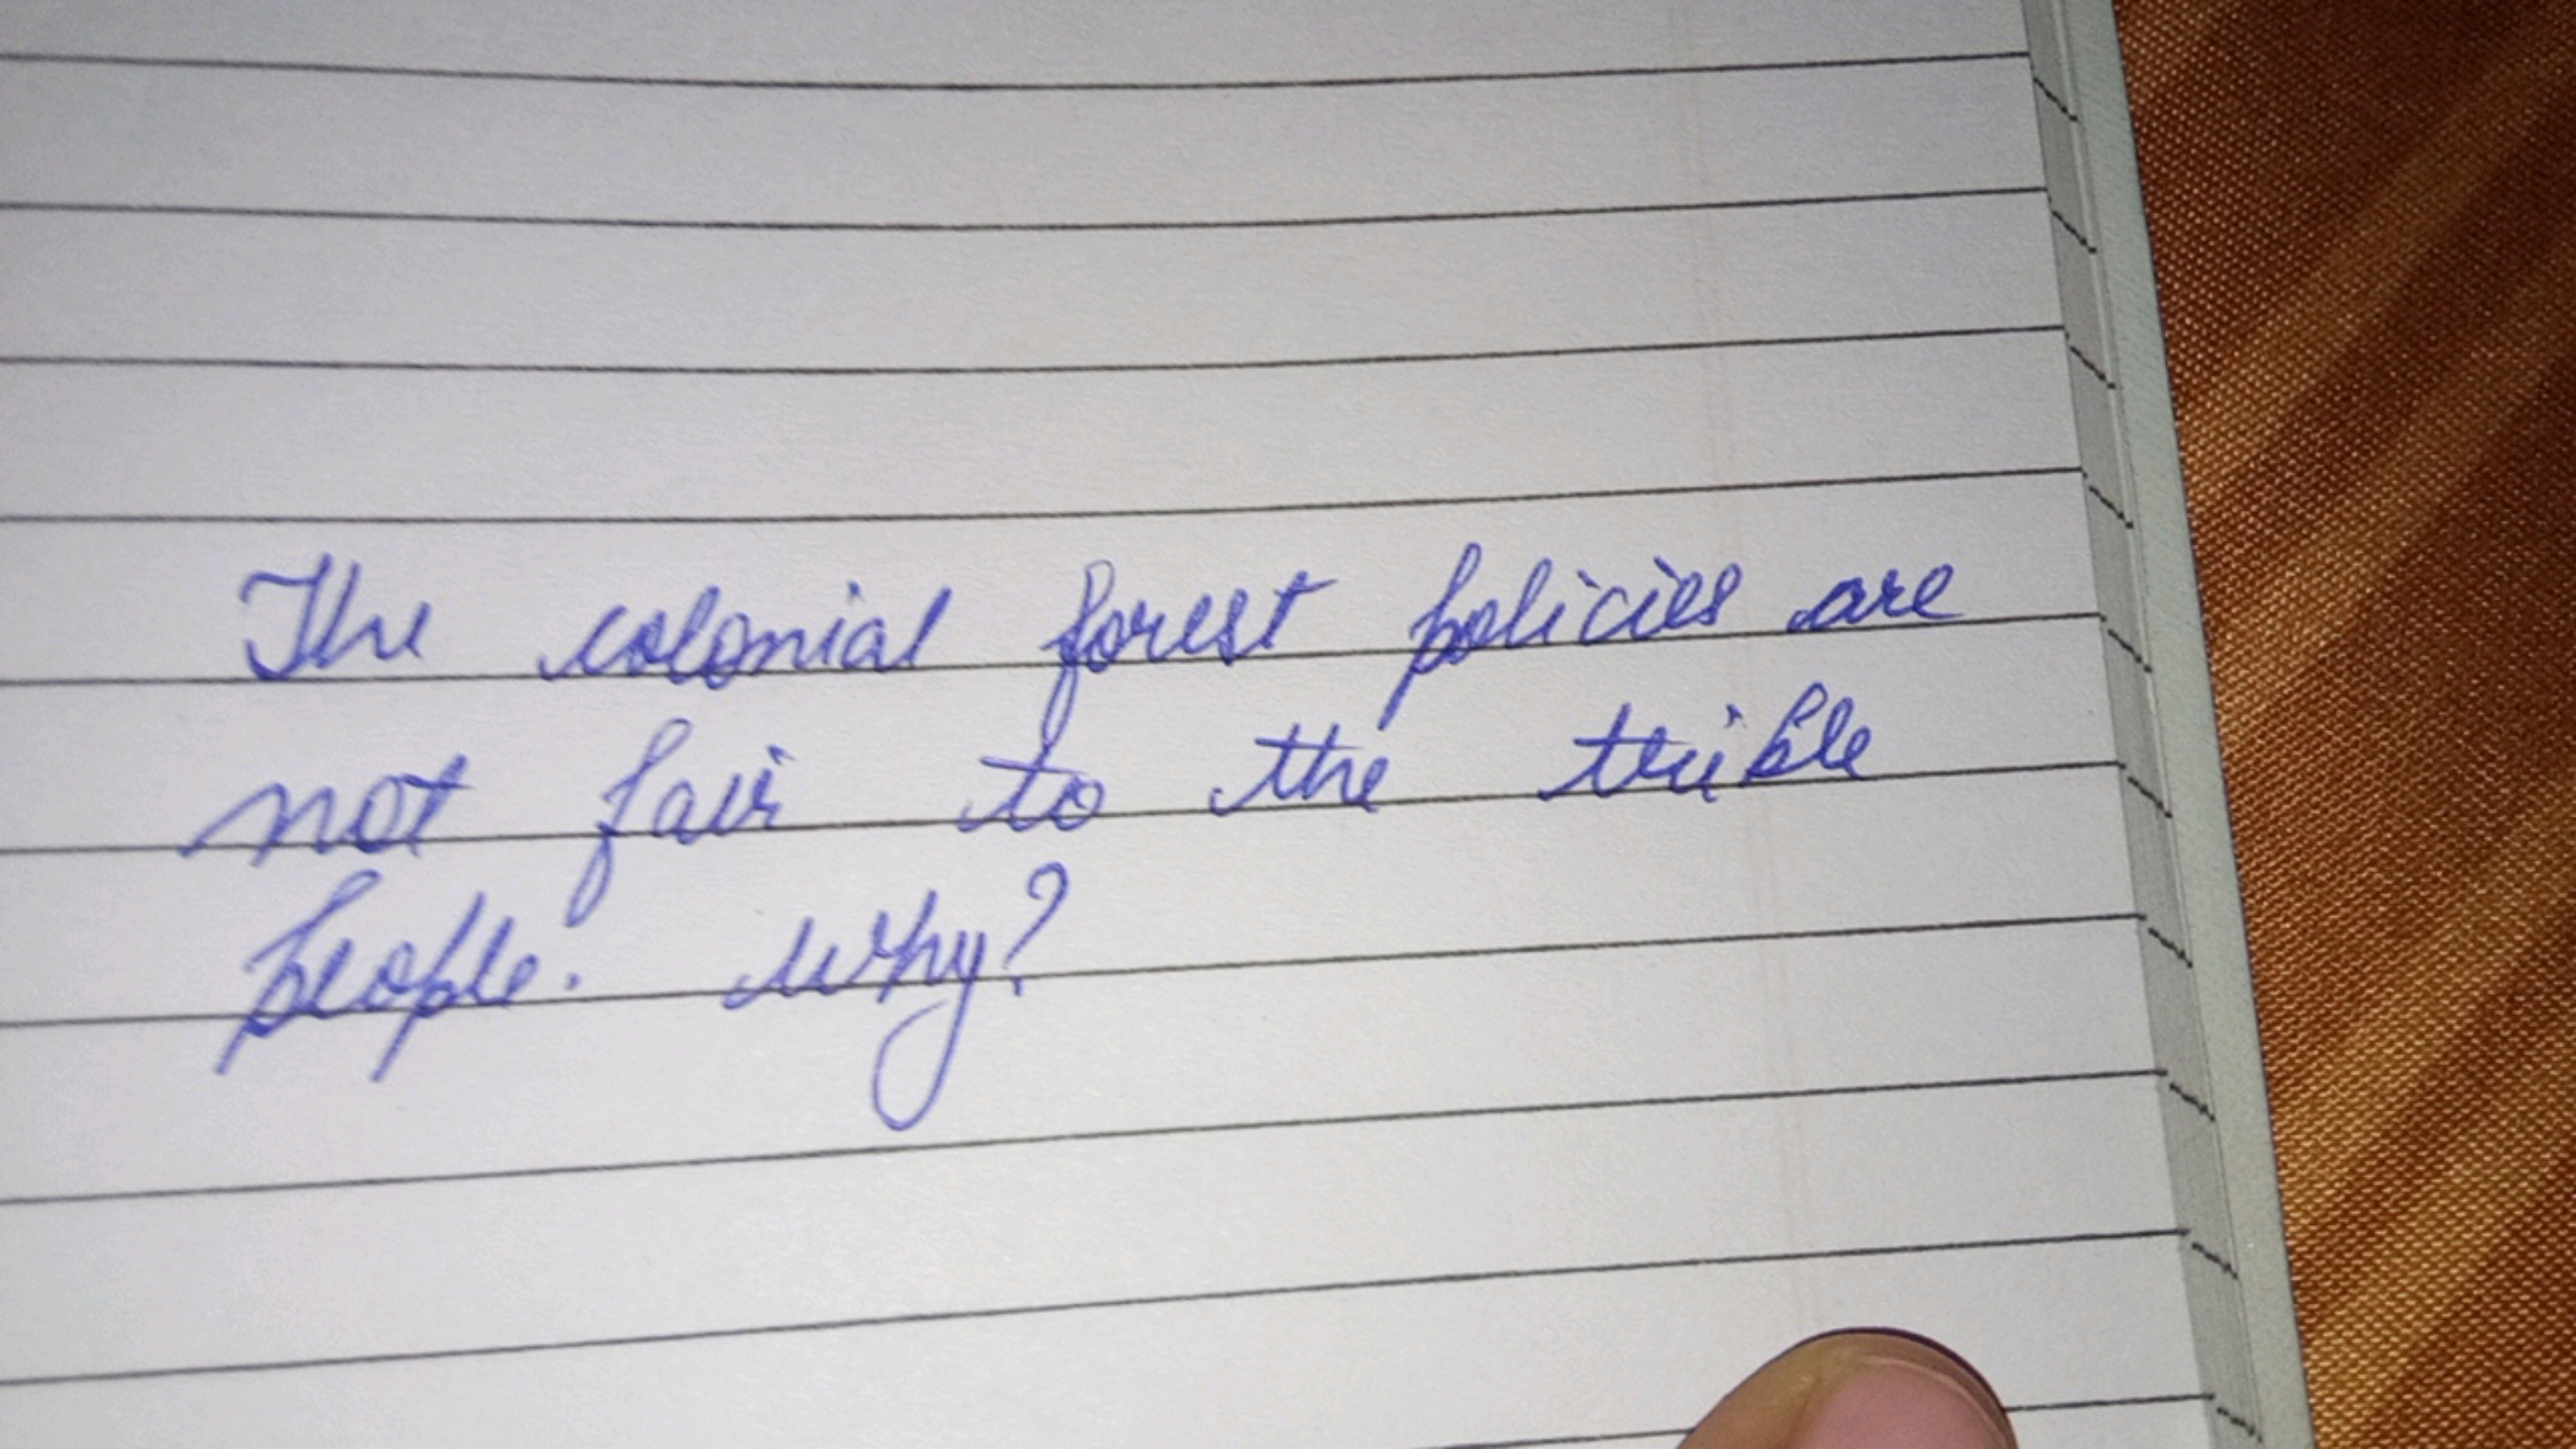 The colonial forest policies are
not fair to the trible
people. why?